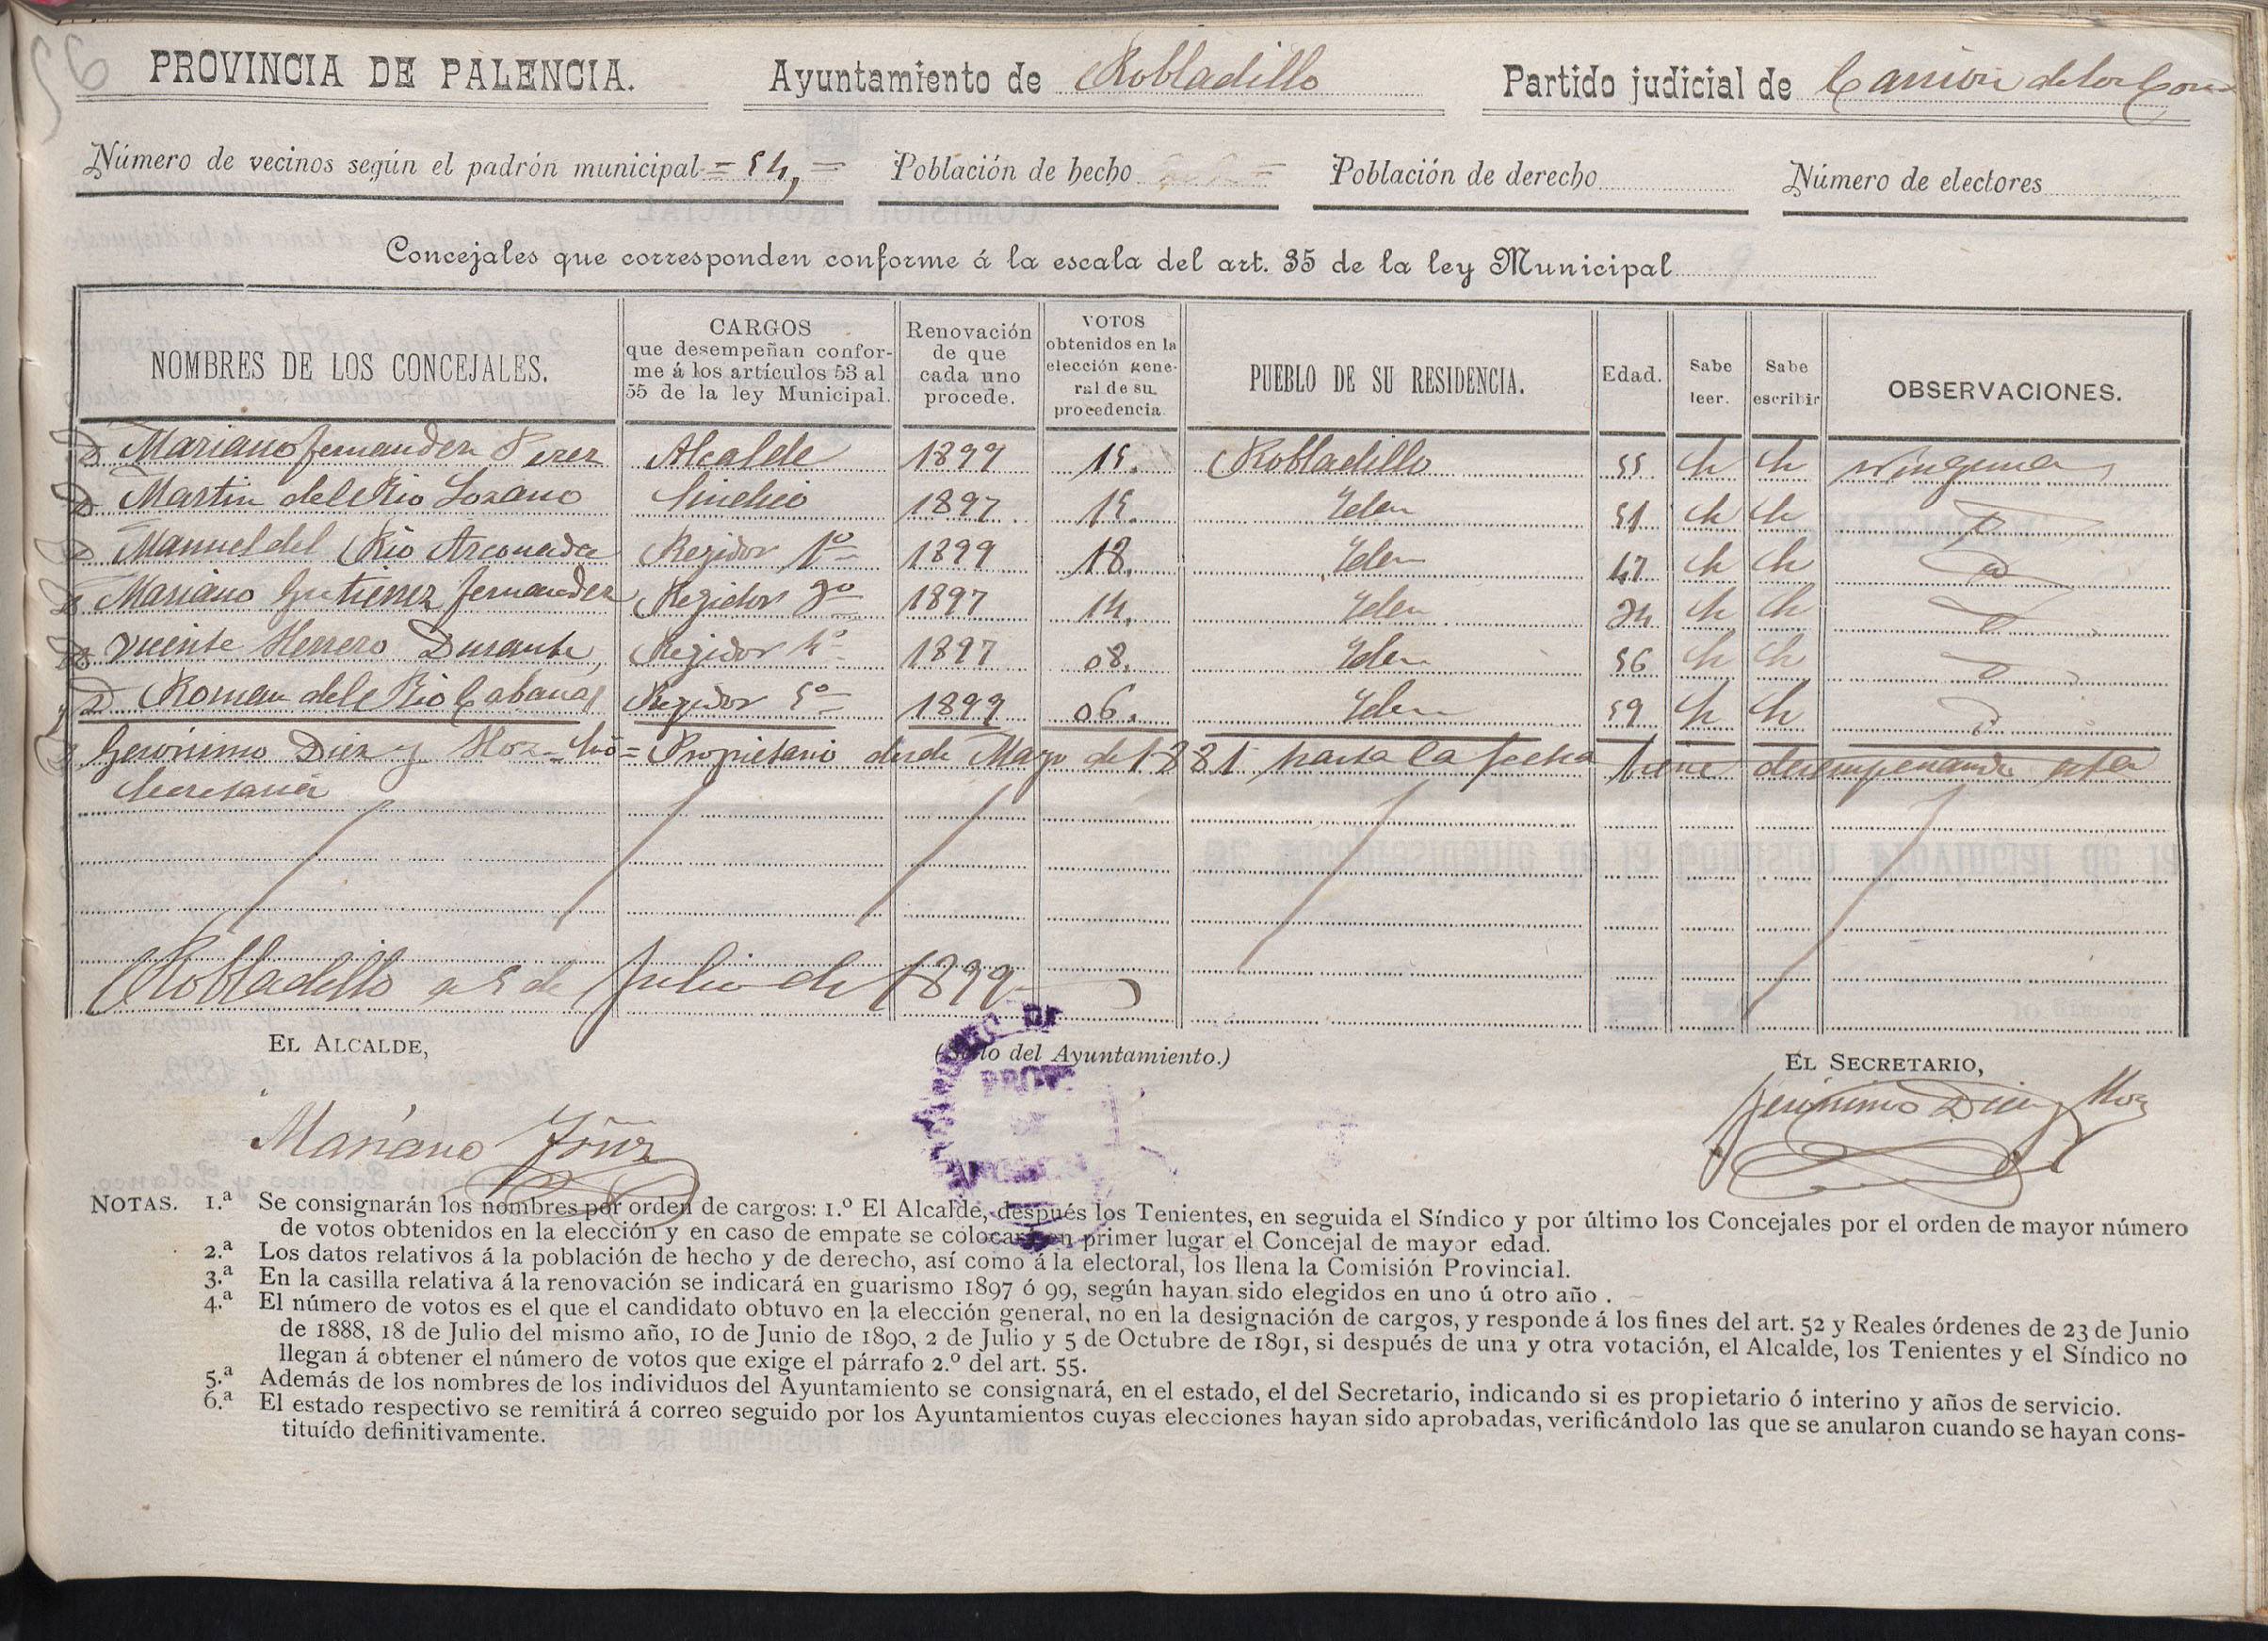 PROVINCIA DE PALENCIA. Ayuntamiento de Robladillo Partido judicial de Carrion de los Cond
Número de vecinos según el padrón municipal = 54, = Población de hecho Población de derecho Número de electores
Concejales que corresponden conforme á la escala del art. 35 de la ley Municipal
NOMBRES DE LOS CONCEJALES. CARGOS que desempeñan confor- me á los artículos 53 al 55 de la ley Municipal. Renovación de que cada uno procede. VOTOS obtenidos en la elección gene- ral de su procedencia PUEBLO DE SU RESIDENCIA. Edad. Sabe leer. Sabe escribir OBSERVACIONES.
D Mariano fernandez Perez Alcalde 1899 15. Robladillo 55 Ninguna
D Martin del Rio Lozano Sindico 1897 15. Iden 51
D Manuel del Rio Arconada Regidor 1º 1899 18. Iden 47
D Mariano Gutierrez fernandez Regidor 1897 14. Iden
D Vicente Herrero Durante, Regidor 4º 1897 08. Iden 56
y D Roman del Rio Cabanas Regidor 5º 1899 06. Iden 59
D Geronimo Diez y Hoz = Propietario desde Mayo de 1881 hasta la fecha biene desempeñando esta
Secretaria
Robladillo a 5 de Julio de 1899
EL ALCALDE, (Sello del Ayuntamiento.) EL SECRETARIO,
Mariano Frnz Jeronimo Diez y Hoz
NOTAS. 1.ª Se consignarán los nombres por orden de cargos: 1.º El Alcalde, después los Tenientes, en seguida el Síndico y por último los Concejales por el orden de mayor número
de votos obtenidos en la elección y en caso de empate se colocará en primer lugar el Concejal de mayor edad.
2.ª Los datos relativos á la población de hecho y de derecho, así como á la electoral, los llena la Comisión Provincial.
3.ª En la casilla relativa á la renovación se indicará en guarismo 1897 ó 99, según hayan sido elegidos en uno ú otro año .
4.ª El número de votos es el que el candidato obtuvo en la elección general, no en la designación de cargos, y responde á los fines del art. 52 y Reales órdenes de 23 de Junio
de 1888, 18 de Julio del mismo año, 10 de Junio de 1890, 2 de Julio y 5 de Octubre de 1891, si después de una y otra votación, el Alcalde, los Tenientes y el Síndico no
llegan á obtener el número de votos que exige el párrafo 2.º del art. 55.
5.ª Además de los nombres de los individuos del Ayuntamiento se consignará, en el estado, el del Secretario, indicando si es propietario ó interino y años de servicio.
6.ª El estado respectivo se remitirá á correo seguido por los Ayuntamientos cuyas elecciones hayan sido aprobadas, verificándolo las que se anularon cuando se hayan cons-
tituído definitivamente.